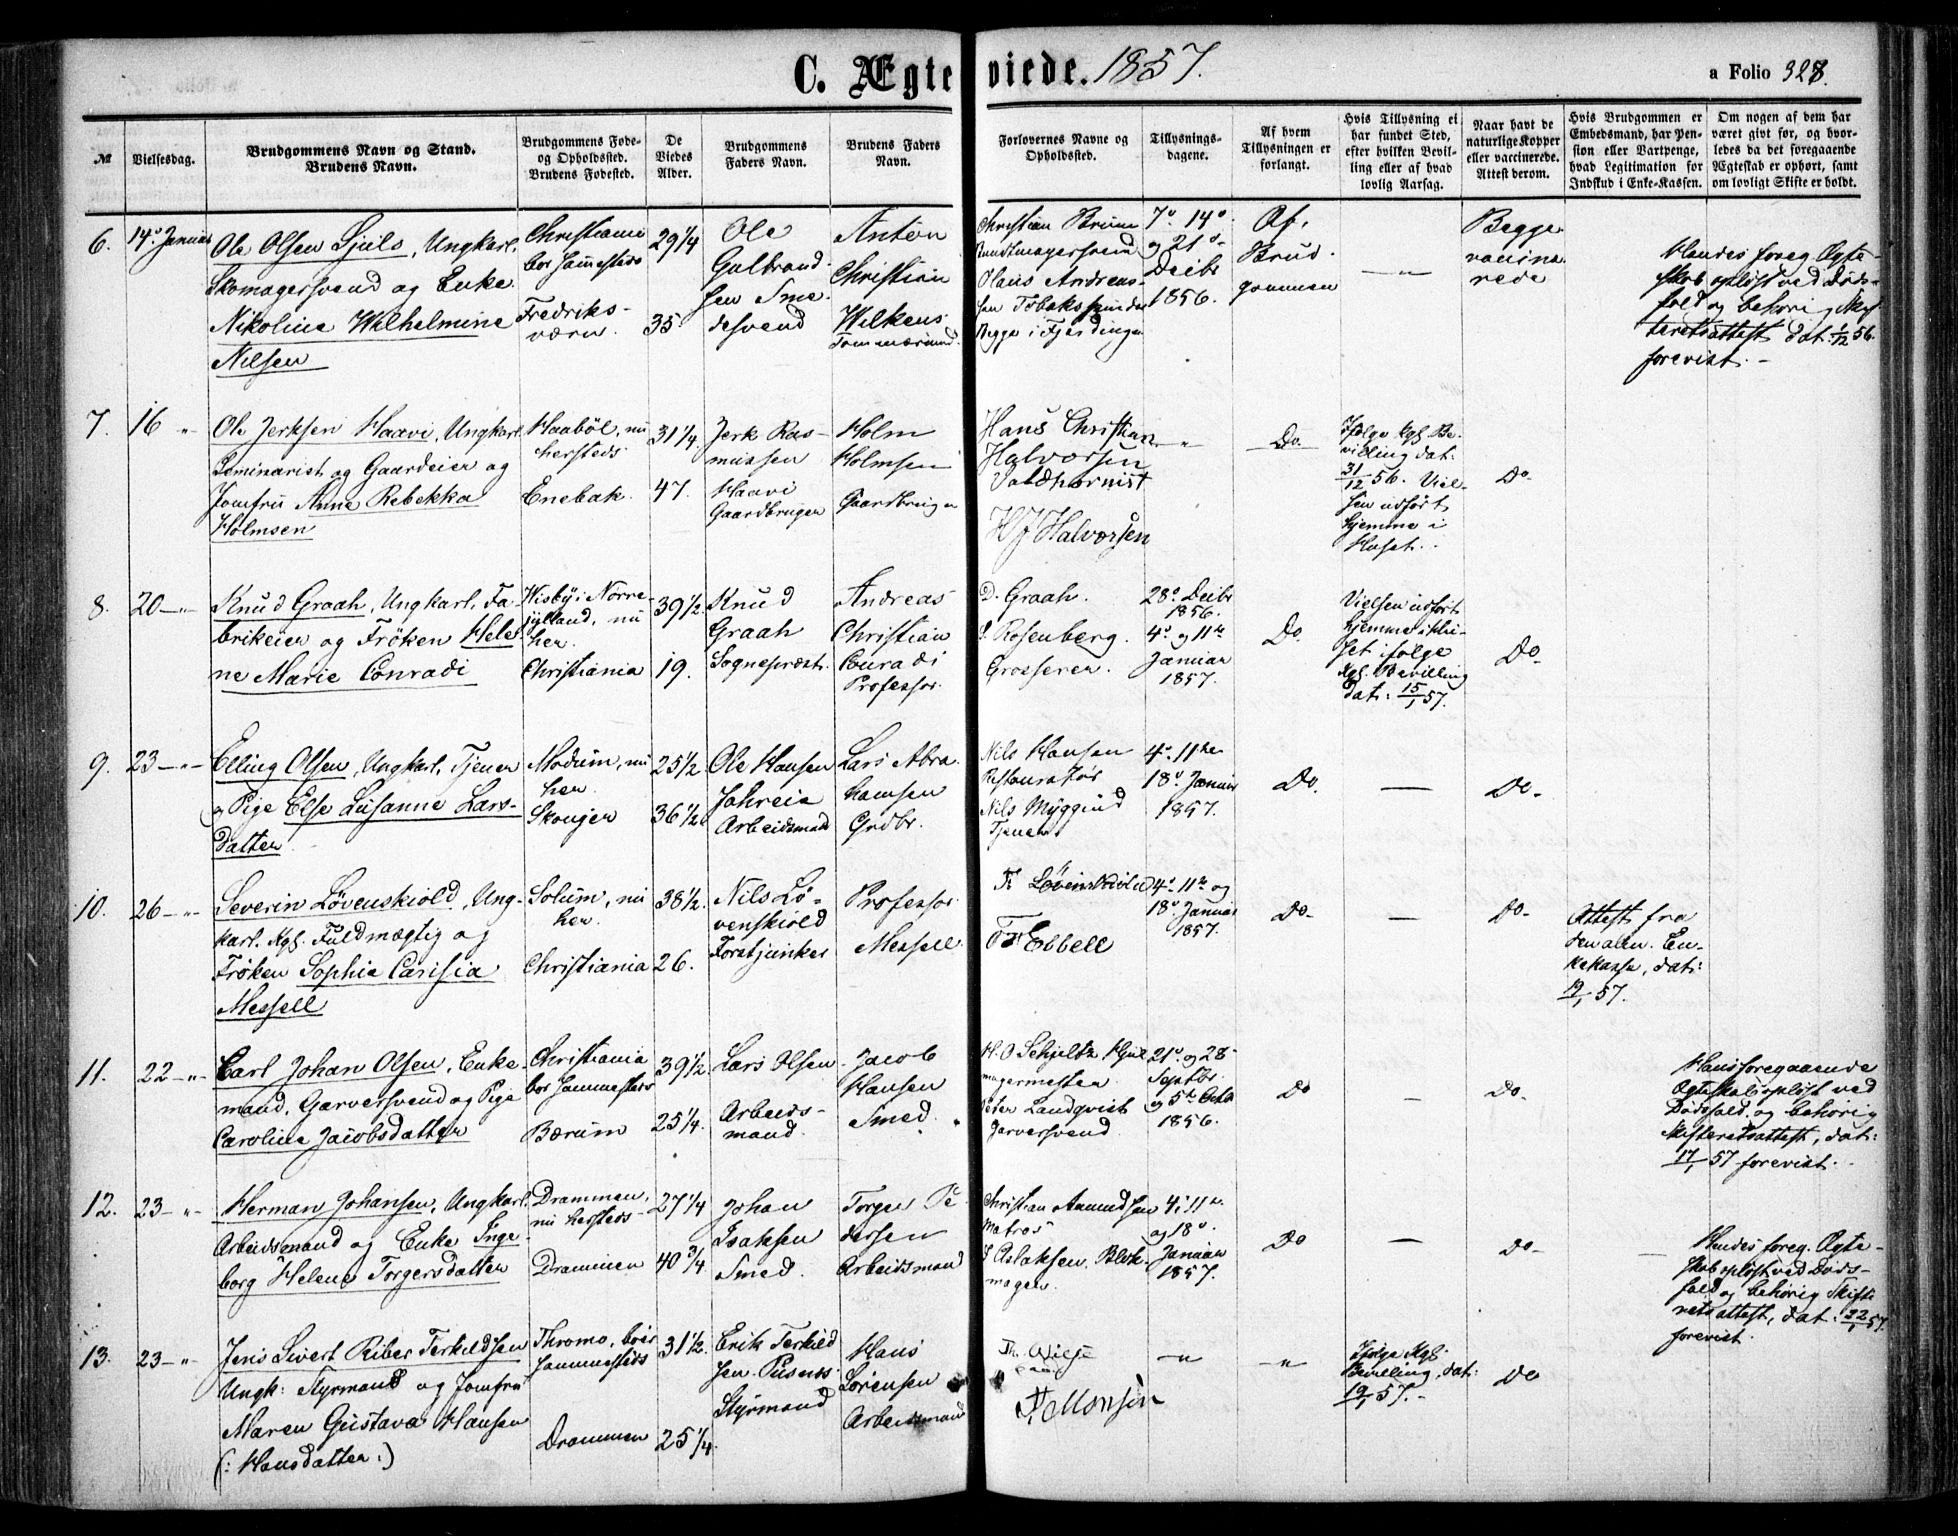 C. Ægteviede. 1857.
a Folio 328.
№
Vielsesdag.
Brudgommens Navn og Stand.
Brudens Navn.
Brudgommens Føde-
og Opholdssted.
Brudens Fødested.
De
Viedes
Alder.
Brudgommens
Faders Navn.
Brudens Faders
Navn.
Forlovernes Navne og
Opholdssted.
Tillysnings-
dagene.
Af hvem
Tillysningen er
forlangt.
Hvis Tillysning ei
har fundet Sted,
efter hvilken Bevil-
ling eller af hvad
lovlig Aarsag.
Naar havt de
naturlige Kopper
eller vaccinerede.
Attest derom.
Hvis Brudgommen er
Embedsmand, har Pen-
sion eller Vartpenge,
hvad Legitimation for
Indskud i Enke-Kassen.
Om nogen af dem har
været givt før, og hvor-
ledes da det foregaaende
Ægteskab er ophørt, samt
om lovligt Skifte er holdt.
6.
14de Januar
Ole Olsen Sjuls, Ungkarl,
Skomagersvend og Enke
Nikoline Wilhelmine
Nilsen
Christiania
bor sammesteds
Fredriks-
værn
29 1/4
35
Ole
Gulbrand-
sen Sme-
desvend
Anton
Christian
Wilkens
Tømmermand
Christian Bruun
Bundtmagersvend
Hans Andreas-
sen Tobakspinder
Begge i Fjerdingen
7de 14de
og 21de
Decbr
1856.
Af
Brud-
gommen
—"—
Begge
vaccine-
rede
Hendes foreg. Ægte-
skab opløst ved Døds-
fald og behørig Skif-
teretsattest dat: 1/12 56.
forevist. —
7.
16 "
Ole Jerksen Haavi, Ungkarl
Seminarist og Gaardeier og
Jomfru Anne Rebekka
Holmsen
Haabøl, nu
hersteds
Enebak.
31 1/4
47.
Jerk Ras-
mussen
Haavi
Gaardbruger
Holm
Holmsen
Gaardbruger
Hans Christian
Halvorsen
Valdhornist
H J Halvorsen
—"—
Do.
Ifølge Kgl. Be-
villing dat:
31/12 56. Viel-
sen udført
hjemme i
Huset.
Do
8.
20—"
Knud Graah, Ungkarl, Fa-
brikeier og Frøken Hele-
ne Marie Conradi
Wisby i Nørre-
jylland, nu
her.
Christiania
39 1/2
19.
Knud
Graah
Sognepræst.
Andreas
Christian
Conradi
Professor.
D. Graah.
S. Rosenberg.
Grosserer.
28de Decbr
1856.
4de og 11te
Januar
1857.
Do.
Vielsen udført
hjemme i Hu-
set ifølge
Kgl. Bevilling
dat: 15/1 57.
Do.
9.
23—"
Elling Olsen, Ungkarl, Tjener
og Pige Else Susanne Lars-
datter
Modum, nu
her.
Skouger
25 1/2
36 1/2
Ole Hansen
Arbeidsmand
Lars Abra-
hamsen
Grdbr.
Nils Hansen
Restauratør
Nils Myggind
Tjener
4de 11te
18de Januar
1857.
Do.
—
Do.
10.
26—"
Severin Løvenskiold, Ung-
karl. Kgl. Fuldmægtig og
Frøken Sophie Carisia
Messell
Solum, nu
her.
Christiania
38 1/2
26.
Nils Lø-
venskiold
Forstjunker
Professor
Messell
Løvenskiold
F Ebbell
4de 11te og
18de Januar
1857.
Do.
—
Do.
Attest fra
den alm. En-
kekasse, dat:
19/1 57.
11.
22—"
Carl Johan Olsen, Enke-
mand, Garversvend og Pige
Caroline Jacobsdatter
Christiania
bor sammesteds
Bærum
39 1/2
25 1/4.
Lars Olsen
Arbeids-
mand.
Jacob
Hansen
Smed.
H. O Schjeltz Hjul-
magermester
Peter Landqvist
Garversvend.
21de og 28de
Septbr.
og 5te Octbr
1856.
Do
—
Do.
Hans foregaaende
Ægteskab opløst ved
Dødsfald og behørig
Skifteretsattest, dat:
17/1 57 forevist.
12.
23—"
Herman Johansen, Ungkarl
Arbeidsmand og Enke Inge-
borg Helene Torgersdatter
Drammen,
nu hersteds
Drammen
27 1/4
40 3/4
Johan
Isaksen
Smed.
Torger Pe-
dersen
Arbeidsmand
Christian Amundsen
Matros
S Aslaksen Blok-
mager.
4de 11te
og 18de
Januar
1857.
Do
—
Do.
Hendes foreg. Ægte-
skab opløst ved Døds-
fald og behørig Skifte-
retsattest, dat: 22/1 57.
forevist.
13.
23—"
Jens Sivert Riber Terkildsen
Ungk: Styrmand og Jomfru
Maren Gustava Hansen
(: Hansdatter :)
Thromø, boer
sammesteds
Drammen
31 1/2
25 1/4.
Erik Terkild-
sen
Styrmand
Hans
Sørensen
Arbeidsmand
Th. Wiese
Monsen
—"
—"
Ifølge Kgl:
Bevilling, dat:
19/1 57.
Do